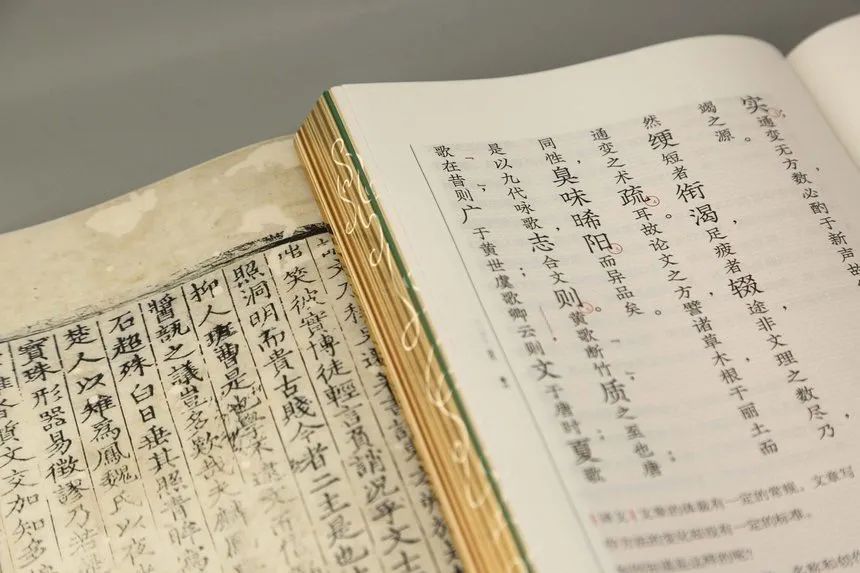 实；通变无方，数必酌于新声；故
竭之源。
然绠短者衔渴，足疲者辍途，非文理之数尽，乃
通变之术疏耳。故论文之方，譬诸草木，根干丽土而
同性，臭味晞阳而异品矣。
是以九代咏歌，志合文则。黄歌断竹，质之至也；唐
歌在昔，则广于黄世；虞歌卿云，则文于唐时；夏歌
[译文]文章的体裁有一定的常规，文章写
作方法的变化却没有一定的标准。
如何知道是这样的呢？
嗤笑彼實博徒輕言負誚况乎文士
照洞明而貴古賤今者二主是也
抑人班曹是也學不逮文而信
醬瓿之議豈多歎哉夫麟鳳
石超殊白日垂其照青眸寫
楚人以雉為鳳魏氏以夜
寳珠形器易徵謬乃若是
質文交加知多偏